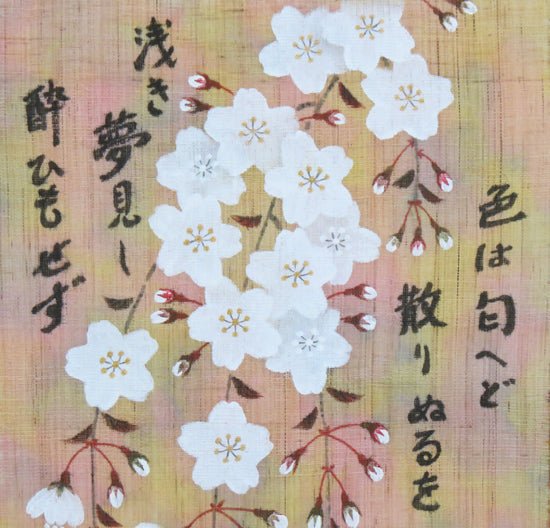 色は匂へど
散りぬるを
浅き
夢見し
酔ひもせず